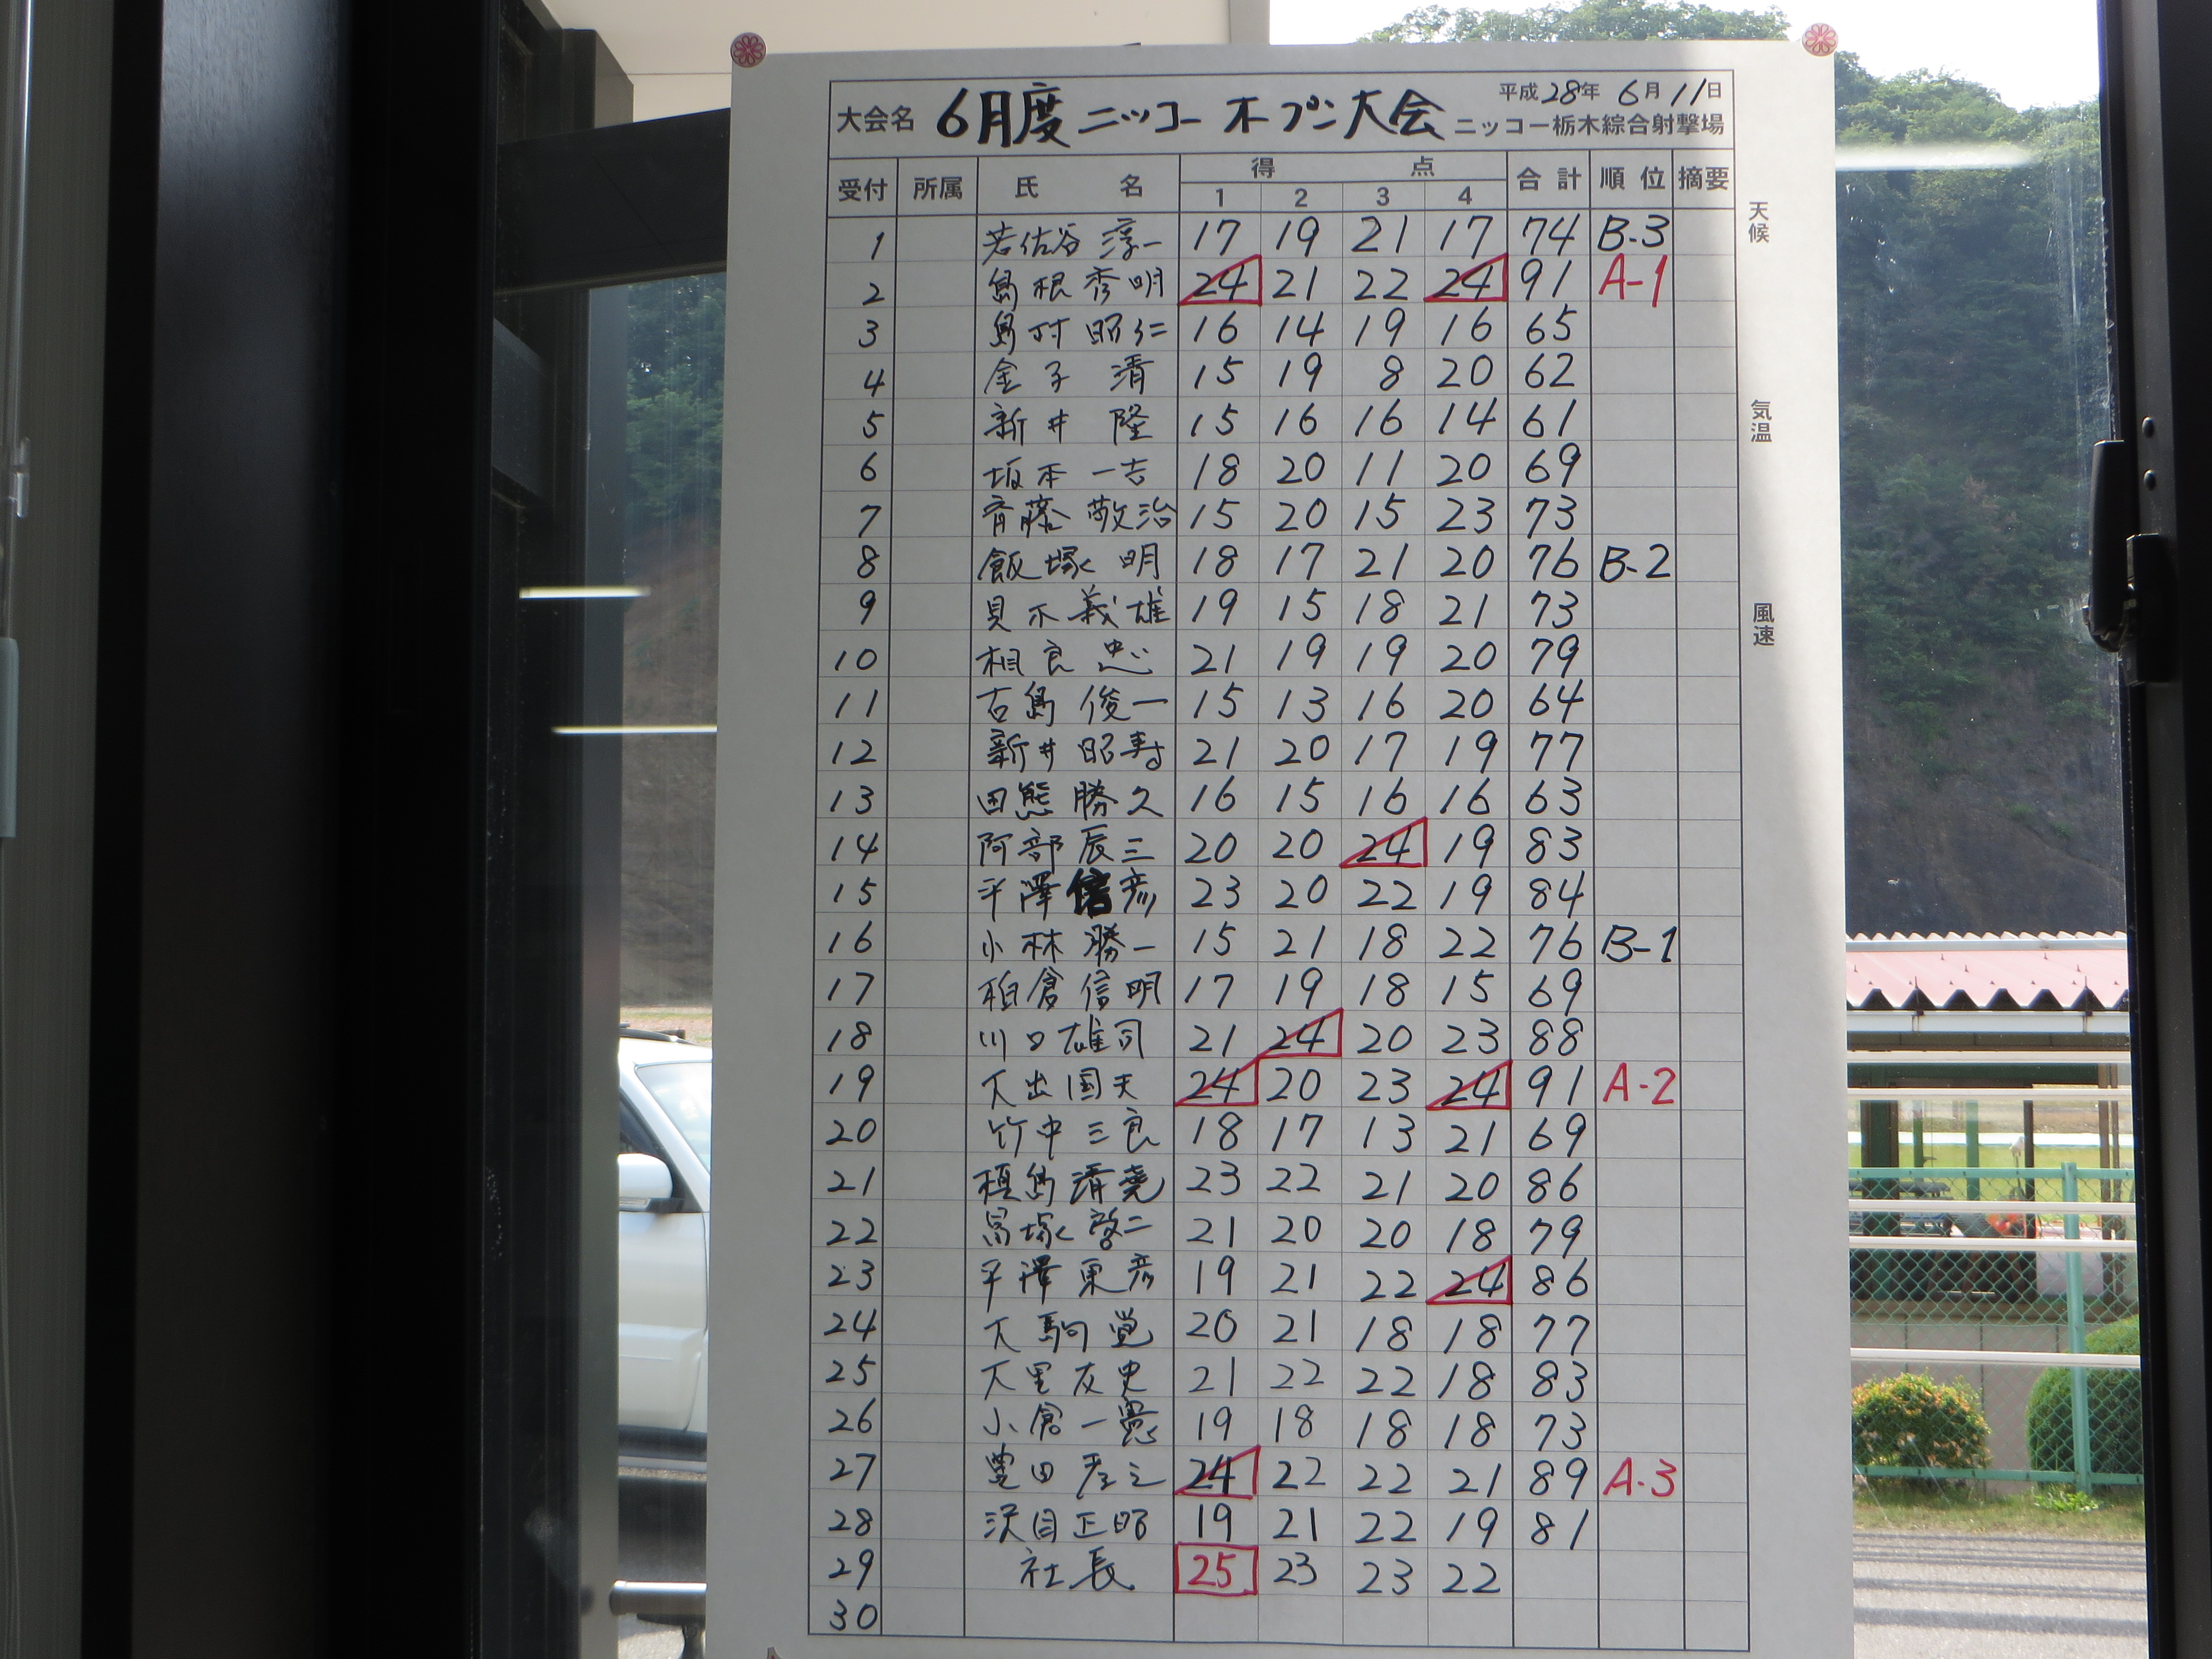 平成28年 6月11日
大会名 6月度ニッコーオープン大会 ニッコー栃木綜合射撃場
受付 所属 氏名 得点 合計 順位 摘要
1 2 3 4
1 若佐谷 淳一 17 19 21 17 74 B-3
2 島根秀明 24 21 22 24 91 A-1
3 島村昭仁 16 14 19 16 65
4 金子 清 15 19 8 20 62
5 新井 隆 15 16 16 14 61
6 坂本一吉 18 20 11 20 69
7 斉藤敬治 15 20 15 23 73
8 飯塚 明 18 17 21 20 76 B-2
9 義雄 19 15 18 21 73
10 相良 忠 21 19 19 20 79
11 古島俊一 15 13 16 20 64
12 新井昭寿 21 20 17 19 77
13 田熊勝久 16 15 16 16 63
14 阿部辰三 20 20 24 19 83
15 平澤信彦 23 20 22 19 84
16 小林勝一 15 21 18 22 76 B-1
17 柏倉信明 17 19 18 15 69
18 川口雄司 21 24 20 23 88
19 大出国夫 24 20 23 24 91 A-2
20 竹中三良 18 17 13 21 69
21 島清 23 22 21 20 86
22 塚啓二 21 20 20 18 79
23 平澤東彦 19 21 22 24 86
24 大駒 覚 20 21 18 18 77
25 大里友史 21 22 22 18 83
26 小倉一憲 19 18 18 18 73
27 豊田 24 22 22 21 89 A-3
28 沢目正昭 19 21 22 19 81
29 社長 25 23 23 22
30
天候
気温
風速